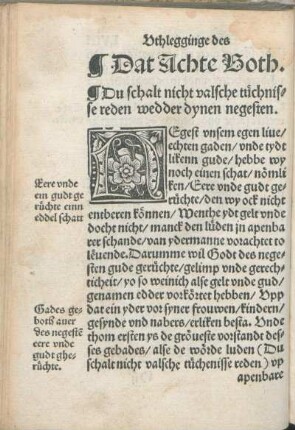 Vthlegginge des
¶ Dat Achte Both.
¶ Du schalt nicht valsche tuͤchnis-
se reden wedder dynen negesten.
NEgest vnsem egen liue/
echten gaden/ vnde tydt
likenn gude/ hebbe wy
noch einen schat/ noͤmli
ken/ Eere vnde gudt ge
ruͤchte/ den wy ock nicht
entberen koͤnnen/ Wenthe ydt gelt vnde
docht nicht/ manck den luͤden jn apenba
rer schande/ van ydermanne vorachtet to
leuende. Darumme wil Godt des neges
sten gude geruͤchte/ gelimp vnde gerech-
ticheit/ yo so weinich alse gelt vnde gud/
genamen edder vorkoͤrtet hebben/ Vpp
dat ein yder vor syner frouwen/ kindern/
gesynde vnd nabers/ erliken besta. Vnde
thom ersten ys de groͤueste vorstandt des-
ses gebades/ alse de woͤrde luden (Du
schalt nicht valsche tuͤchenisse reden) vp
apenbare
Eere vnde
ein gudt ge
ruͤchte einn
eddel schatt
Gades ge-
both auer
des negestē
eere vnde
gudt ghe-
ruͤchte.